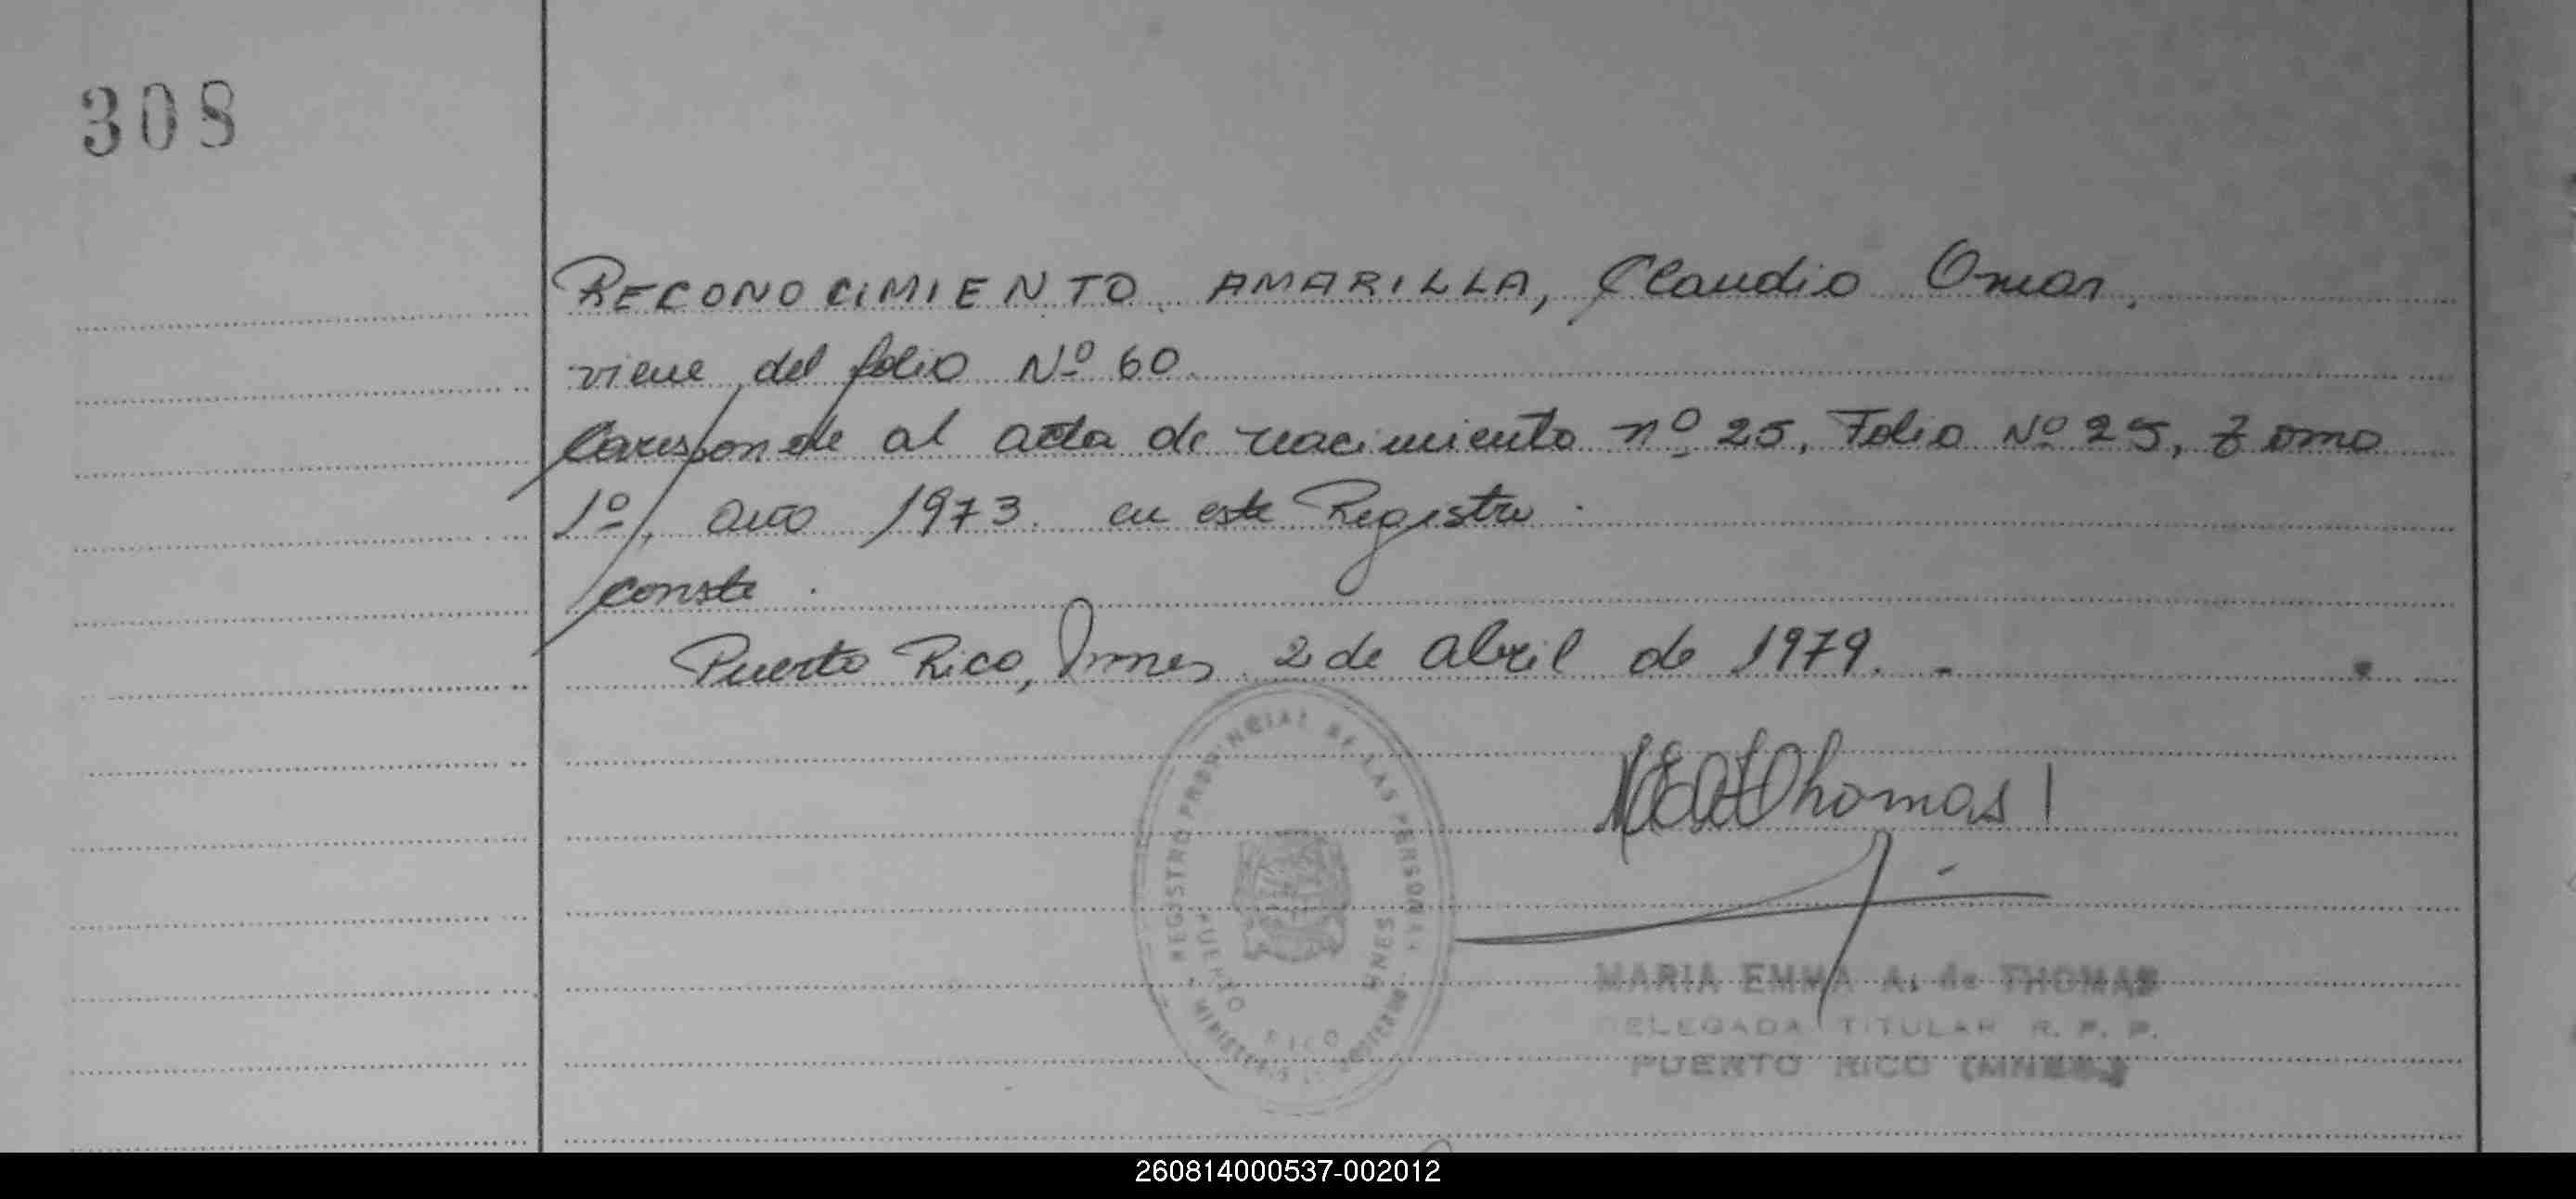 308
RECONOCIMIENTO. AMARILLA, Claudio Omar.
viene del folio Nº 60.
Coresponde al acta de nacimiento nº 25, Folio Nº 25, Tomo
1º, año 1973. en este Registro.
Conste.
Puerto Rico, Mnes, 2 de abril de 1979. .
MEAdeThomas
REGISTRO PROVINCIAL DE LAS PERSONAS
PUERTO RICO MNES
MINISTERIO GOBIERNO
MARIA EMMA A. de THOMAS
DELEGADA TITULAR R. P. P.
PUERTO RICO (MNES.)
260814000537-002012